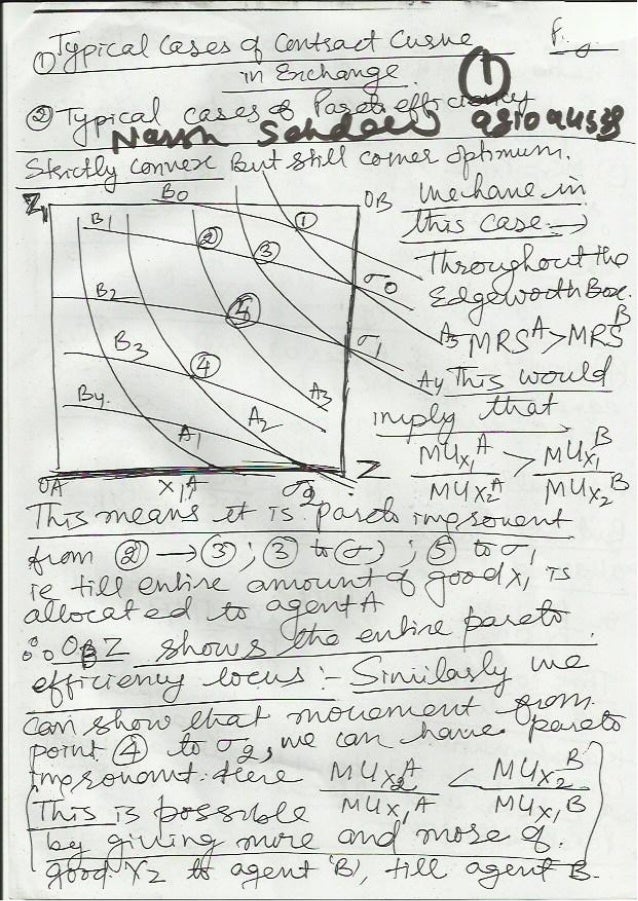 ① Typical Cases of Contract Curve
in Exchange.
①
② Typical cases of Pareto efficiency
Strictly convex But still corner optimum.
Z₁
B0
OB
We have in
this case →
B1
②
③
①
Throughout the
Edgeworth Box.
σ0
B2
⑤
A5
MRS^A > MRS^B
σ1
B3
④
A4
This would
imply that
A3
B4
A1
A2
MUx₁^A / MUx₂^A > MUx₁^B / MUx₂^B
OA
X₁A
σ2
Z
This means it is pareto improvment
from ② → ③; ③ to σ; ⑤ to σ1
ie till entire amount of good x₁ is
allocated to agent A
∴ OBZ shows the entire pareto
efficiency locus :- Similarly we
can show that movement from
point ④ to σ2, we can have pareto
improvmt. Here MUx₂^A / MUx₁^A < MUx₂^B / MUx₁^B
This is possible
by giving more and more of
good X2 to agent 'B', till agent B.